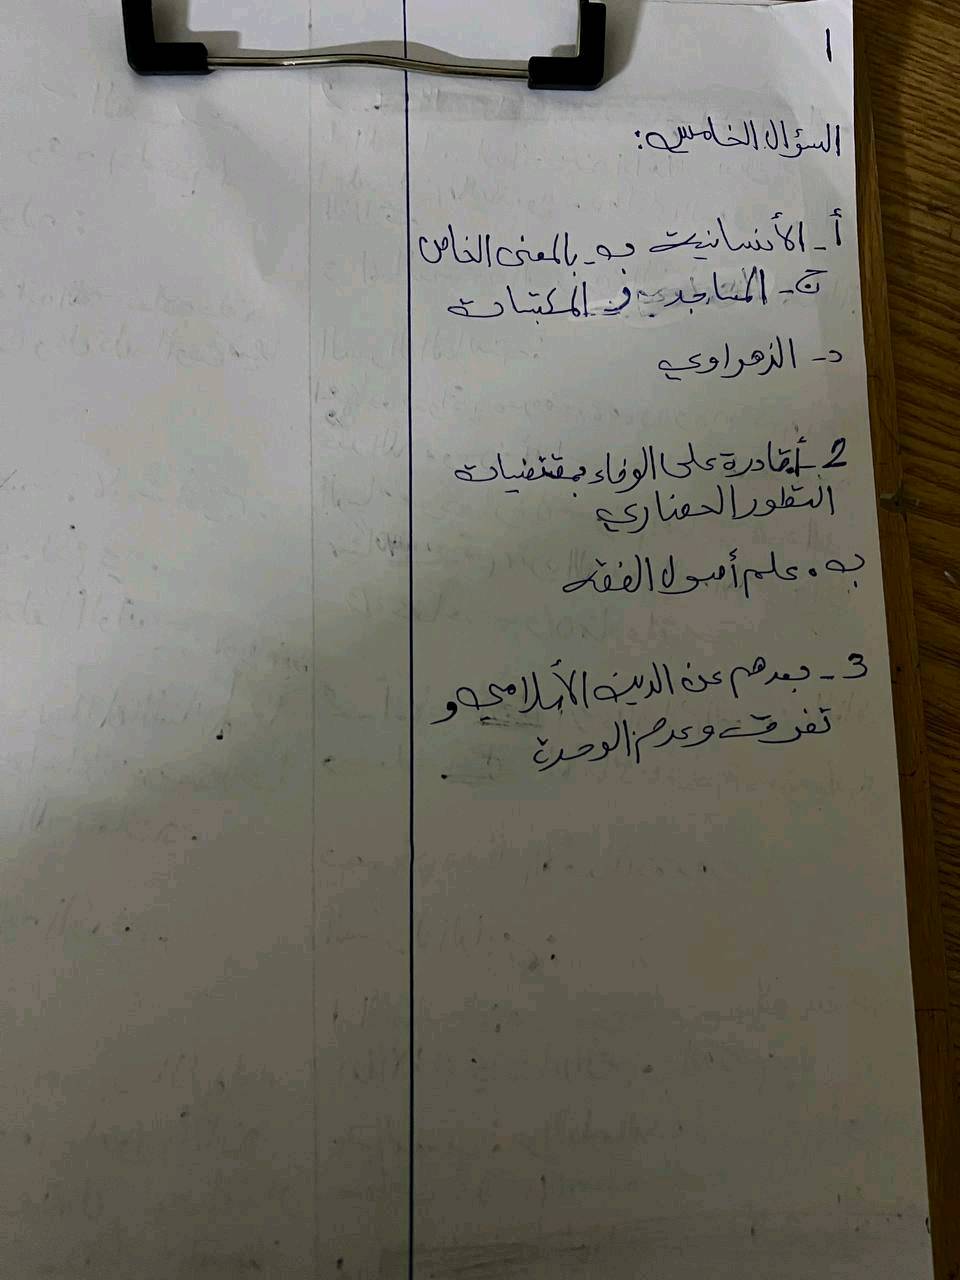 ١
السؤال الخامس:
أ- الأنسانية ب- بالمعنى الخاص
ج- المساجد في المكتبات
د- الزهراوي
2- أ. قادرة على الوفاء بمقتضيات
التطور الحضاري
ب. علم أصول الفقه
3- بعدهم عن الدين الأسلامي و
تفرق وعدم الوحدة